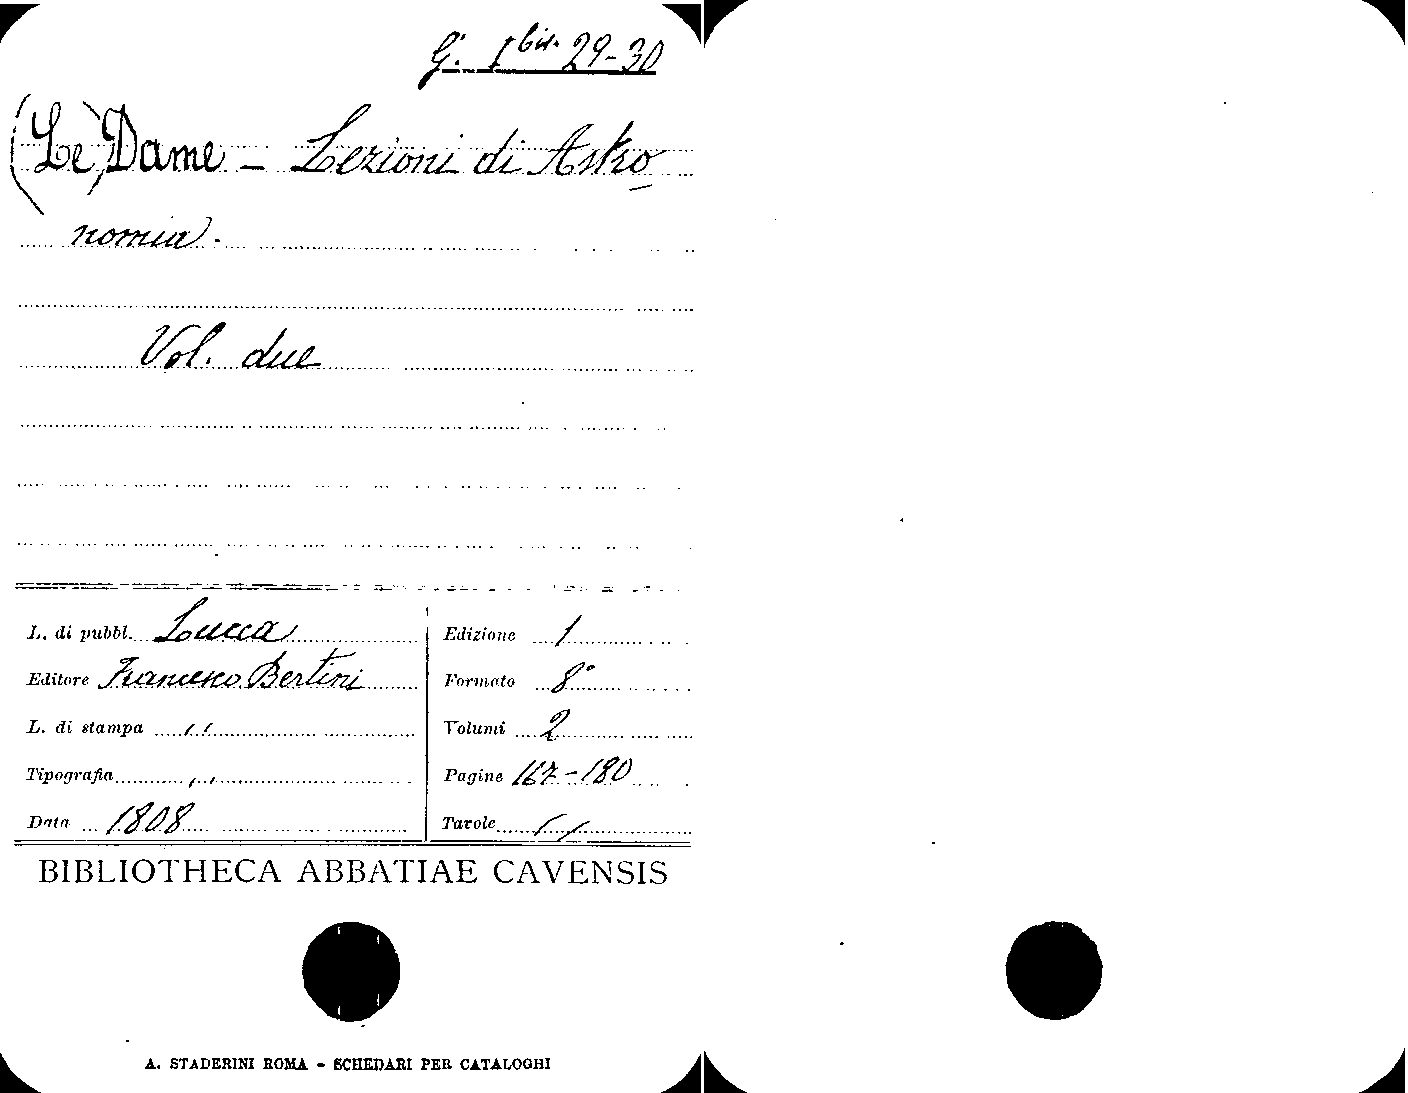 G. 1 bis. 29-30
(Le) Dame - Lezioni di Astro
nomia.
Vol. due
L. di pubbl. Lucca
Editore Francesco Bertini
L. di stampa ,,
Tipografia ,,
Data 1808
Edizione 1
Formato 8°
Volumi 2
Pagine 167-180
Tavole //
BIBLIOTHECA ABBATIAE CAVENSIS
A. STADERINI ROMA - SCHEDARI PER CATALOGHI